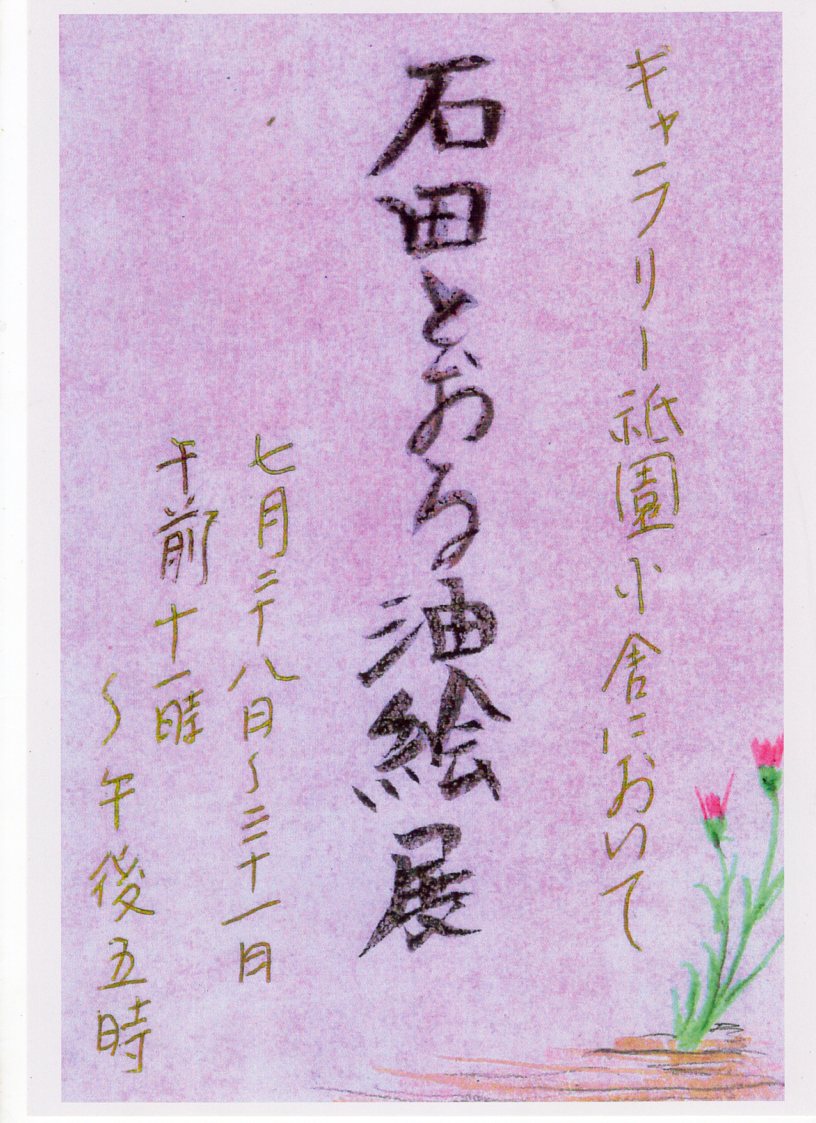 ギャラリー祇園小舎において
石田とおる油絵展
七月二十八日~三十一日
午前十一時
~午後五時